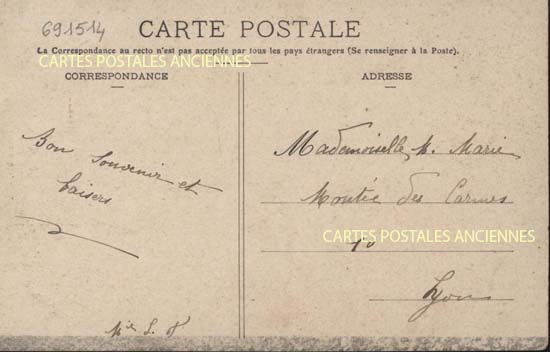 691514
CARTE POSTALE
La Correspondance au recto n'est pas acceptée par tous les pays étrangers (Se renseigner à la Poste).
CARTES POSTALES ANCIENNES
CORRESPONDANCE
Bon Souvenir et
baisers
ADRESSE
Mademoiselle M. Marie
Montée des Carmes
CARTES POSTALES ANCIENNES
10
Lyon